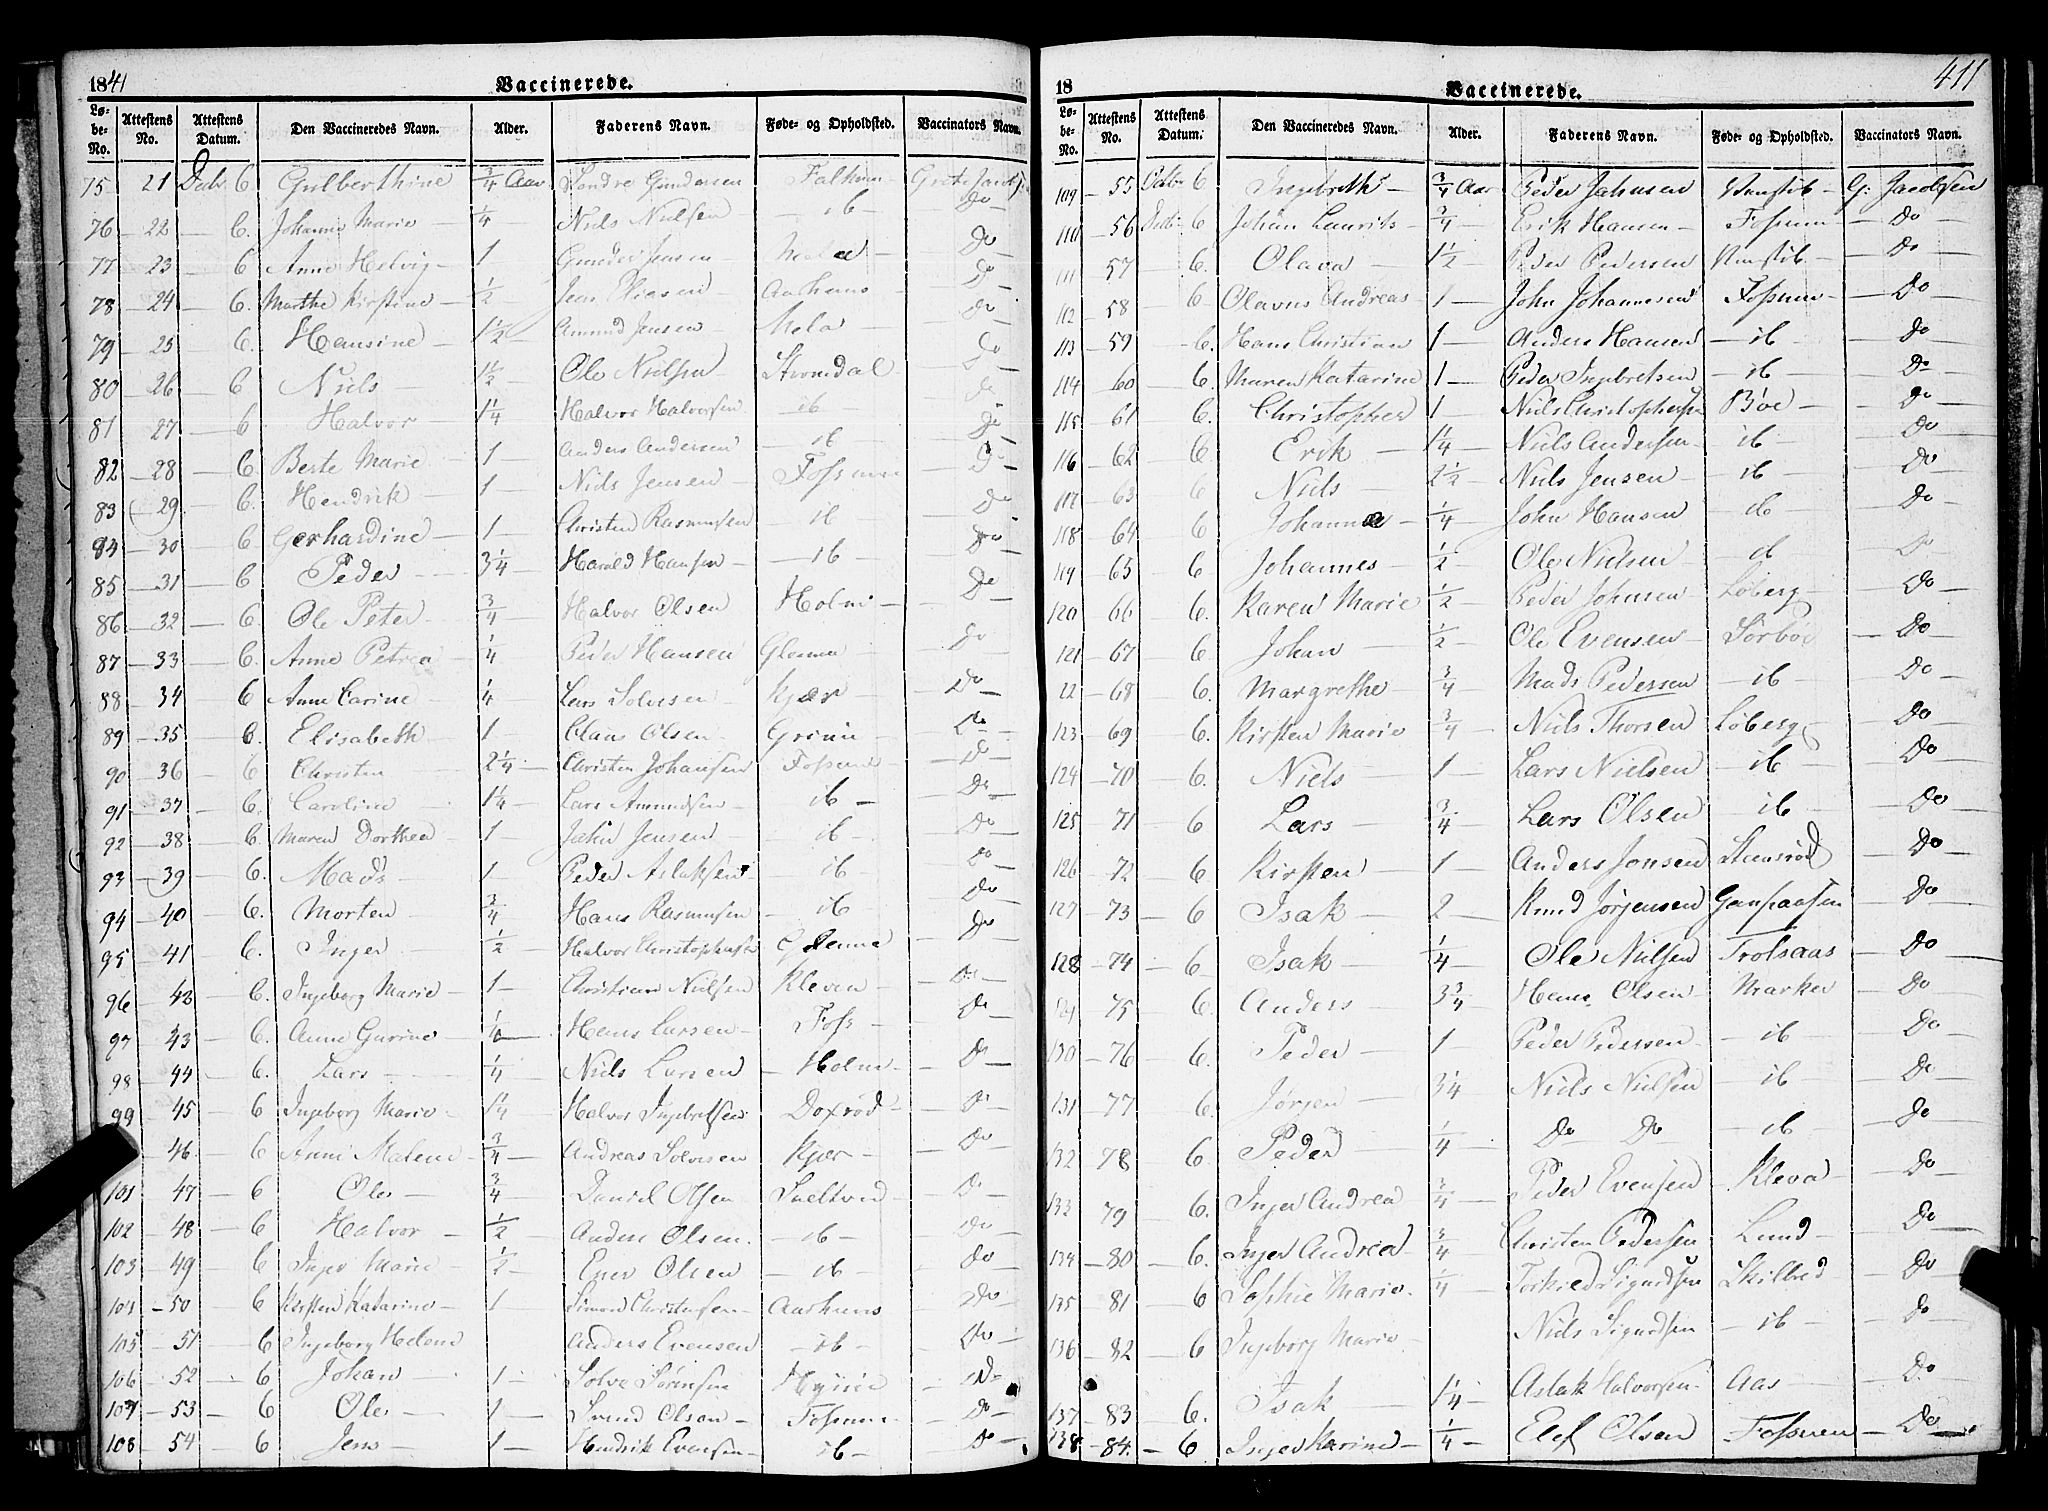 1841 Vaccinerede.
Lø-be-No. Attestens No. Attestens Datum. Den Vaccineredes Navn. Alder. Faderens Navn. Føde- og Opholdsted. Vaccinators Navn.
75 21 Decbr 6 Gulberthine 3/4 Aar Sondre Gundersen Falkum Grete Jacobsen
76 22 6. Johanne Marie 1/4 Niels Nielsen ib Do
77 23 6 Anne Helvig 1 Gunder Jensen Mela Do
78 24 6. Marthe Kirstine 1/2 Jens Eliesen Aarhuus Do
79 25 6. Hansine 1 1/2 Amund Jensen Mela Do
80 26 6 Niels 1 1/2 Ole Nielsen Strømdal Do
81 27 6 Halvor 1 1/4 Halvor Halvorsen ib Do
82 28 6. Berte Marie 1 Anders Andersen ib Do
83 29 6. Hendrik 1 Niels Jensen Fossum Do
84 30 6 Gerhardine 1 Christen Rasmussen ib Do
85 31 6 Peder 3 1/4 Harald Hansen ib Do
86 32 6 Ole Peter 3/4 Halvor Olsen Holm Do
87 33 6. Anne Petrea 1/4 Peder Hansen Glenna Do
88 34 6 Anne Carine 1/4 Lars Solvesen Kjær Do
89 35 6. Elisabeth 1 Claus Olsen Grimi Do
90 36 6 Christen 2 1/4 Christen Johansen Fossum Do
91 37 6. Caroline 1 1/4 Lars Amundsen ib Do
92 38 6. Maren Dorthea 1 John Jensen ib Do
93 39 6. Mads 1 Peder Aslaksen ib Do
94 40 6. Morten 3/4 Hans Rasmussen ib Do
95 41 6. Inger 1/2 Halvor Christophersen Glenna Do
96 42 6. Ingeborg Marie 1 Christian Nielsen Kleven Do
97 43 6. Anne Gurine Hans Larsen Foss Do
98 44 6. Lars 1/4 Niels Larsen Holm Do
99 45 6 Ingeborg Marie 1 1/4 Halvor Ingebretsen Doxrød Do
46 6 Anne Malene 3/4 Andreas Solvesen Kjær Do
101 47 6 Ole 3/4 Daniel Olsen Do
102 48 6 Halvor 1/2 Anders Olsen. ib Do
103 49 6 Inger Marie 1/2 Olsen ib Do
104 50 6 Kirsten Katarine 1 Simon Christensen Aarhuus Do
105 51 6 Ingeborg Helene Anders Evensen ib Do
106 52 6 Johan 1 Solve Sørensen Do
107 53 6 Ole 1 Svend Olsen Fossum Do
108 54 6 Jens 1 Hendrik Evensen ib Do
18 Vaccinerede. 411
Lø-be-No. Attestens No. Attestens Datum. Den Vaccineredes Navn. Alder. Faderens Navn. Føde- og Opholdsted. Vaccinators Navn.
109 55 Decbr 6 Ingebreth 3/4 Aar Peder Johnsen G: Jacobsen
110 56 Decbr 6 Johan Laurits 3/4 Erik Hansen Fossum Do
111 57 6. Olava 1 1/2 Peder Pedersen Do
112 58 6 Olavus Andreas 1 John Johannesen Fossum Do
113 59 6. Hans Christian 1 Anders Hansen ib Do
114 60 6. Maren Katarine 1 Peder Ingebretsen ib Do
115 61 6. Christopher 1 Niels Christophersen Bøe Do
116 62 6 Erik 1 1/4 Niels Andersen ib Do
117 63 6 Niels 2 1/2 Niels Jensen ib Do
118 64 6 Johanna 1/4 John Hansen ib Do
119 65 6 Johannes 1/2 Ole Nielsen ib Do
120 66 6. Karen Marie 1/2 Peder Johnsen Løberg Do
121 67 6 Johan 1/2 Ole Evensen Sørbøe Do
22 68 6. Margrethe 3/4 Mads Pedersen ib Do
123 69 6. Kirsten Marie 3/4 Niels Thorsen Løberg Do
124 70 6. Niels 1 Lars Nielsen ib Do
125 71 6 Lars 3/4 Lars Olsen ib Do
126 72 6 Kirsten 1 Anders Jonsen Steensrød Do
127 73 6 Isak 2 Knud Jørgensen Do
128 74 6 Isak 1/4 Ole Nielsen Trolsaas Do
129 75 6. Anders 3 3/4 Hans Olsen Marker Do
130 76 6. Peder 1 Peder Pedersen ib Do
131 77 6. Jørgen 3 1/4 Niels Nielsen ib Do
132 78 6 Peder 1/4 Do Do ib Do
133 79 6. Inger Andrea 3/4 Peder Evensen Kleva Do
134 80 6. Inger Andrea 3/4 Christen Pedersen Lund Do
135 81 6 Sophie Marie. 1/4 Torkild Sigurdsen Skilbred Do
136 82 6 Ingeborg Marie Niels Sigurdsen ib Do
137 83 6. Isak 1 1/4 Aslak Halvorsen Aas Do
138 84. 6 Inger Karine 1/4 Elef Olsen Fossum Do